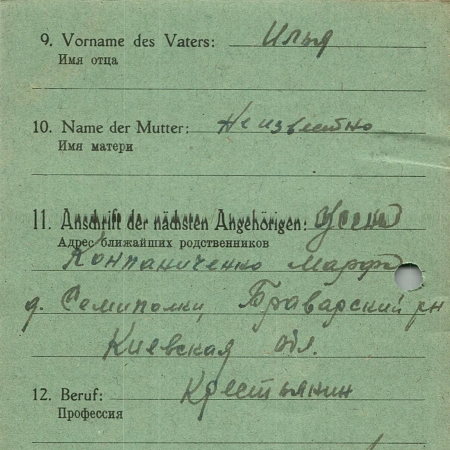 9. Vorname des Vaters: Илья
Имя отца
10. Name der Mutter: Неизвестно
Имя матери
11. Anschrift der nächsten Angehörigen:
Адрес ближайших родственников
Компаниченко Марфа
д. Семиполки, Браварский рн
Киевская обл.
12. Beruf: Крестьянин
Профессия